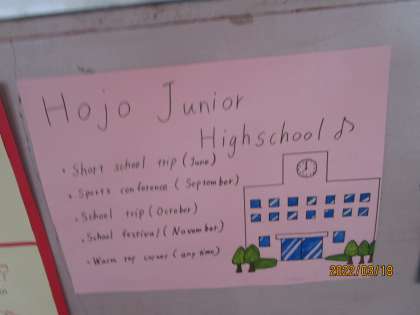 Hojo Junior
Highschool ♪
• Short school trip (June)
• Sports conference (September)
• School trip (October)
• School festival (November)
• Warm up corner (any time)
2022/03/18